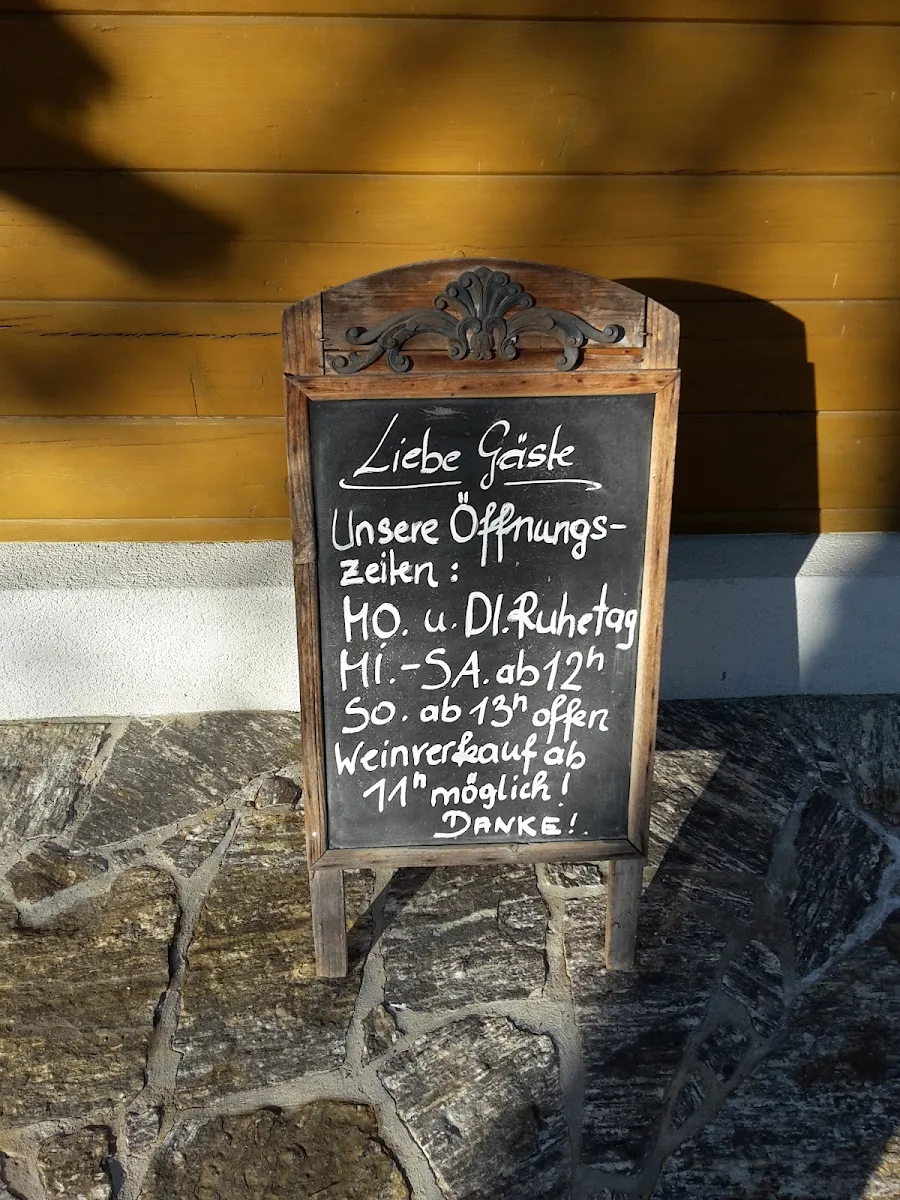 Liebe Gäste
Unsere Öffnungs-
zeiten :
MO. u. DI. Ruhetag
Mi.-SA. ab 12h
So. ab 13h offen
Weinverkauf ab
11h möglich!
DANKE!